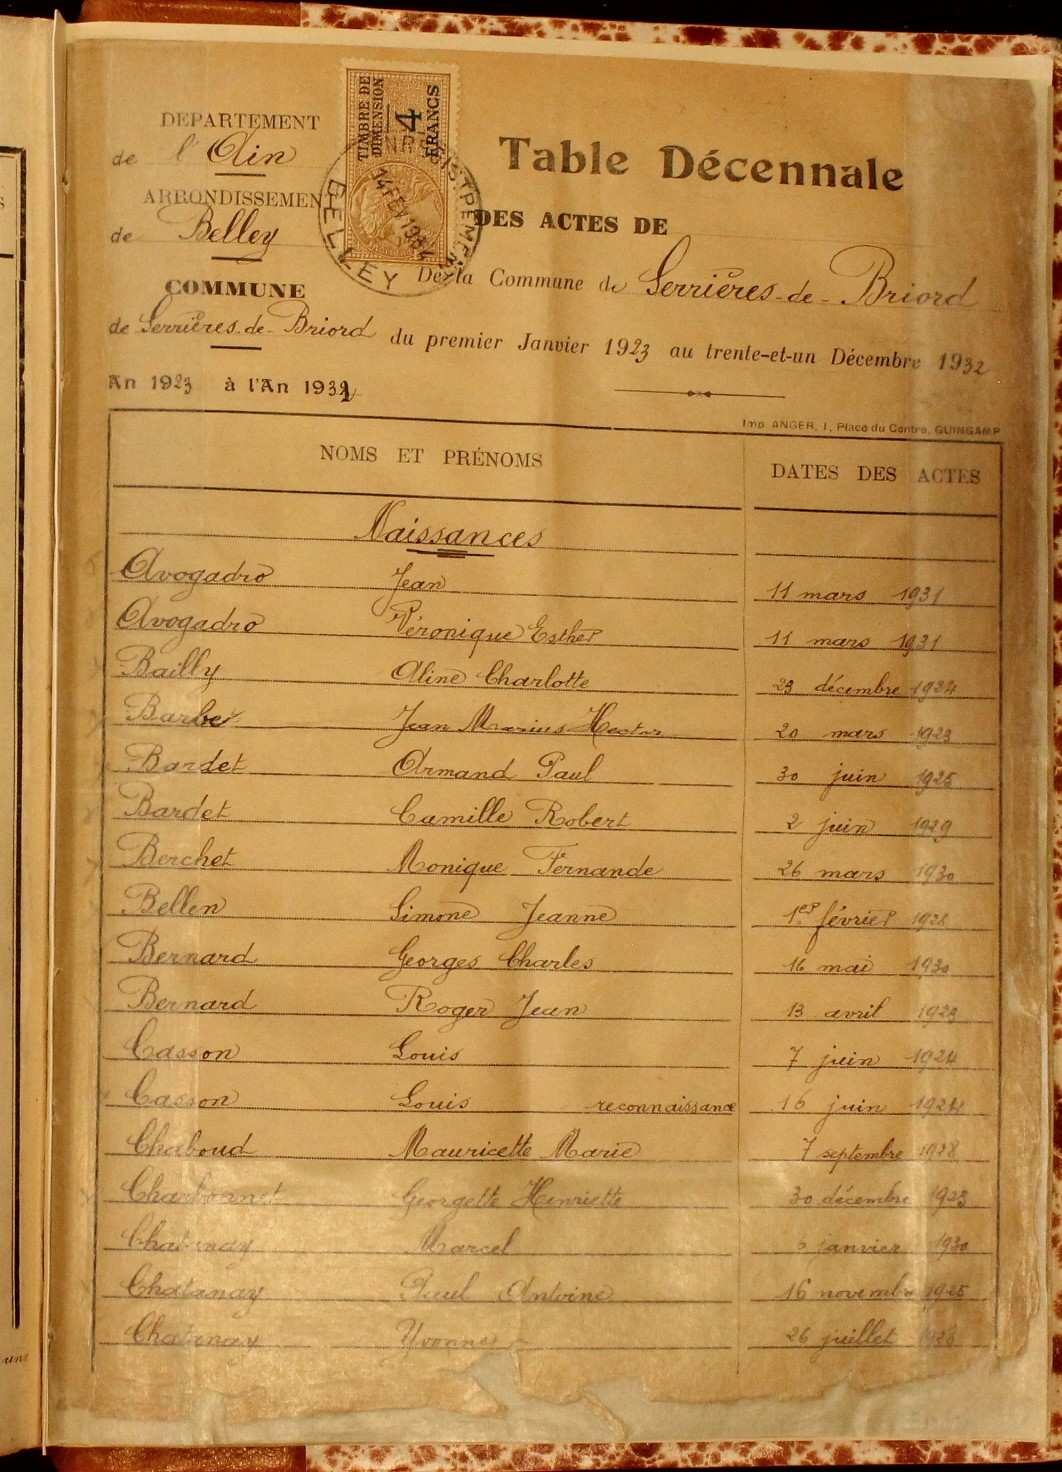 DEPARTEMENT
de l'Ain
ARRONDISSEMENT
de Belley
COMMUNE
de Serrières-de-Briord
An 1923 à l'An 1932
TIMBRE DE DIMENSION
4 FRANCS
BELLEY
14 FEV 1934
Table Décennale
DES ACTES DE
De la Commune de Serrières-de-Briord
du premier Janvier 1923 au trente-et-un Décembre 1932
Imp. ANGER, 1, Place du Centre, GUINGAMP
NOMS ET PRÉNOMS DATES DES ACTES
Naissances
Avogadro Jean 11 mars 1931
Avogadro Véronique Esther 11 mars 1931
Bailly Aline Charlotte 23 décembre 1924
Barbet Jean Marius Hector 20 mars 1923
Bardet Armand Paul 30 juin 1925
Bardet Camille Robert 2 juin 1929
Berchet Monique Fernande 26 mars 1930
Bellen Simone Jeanne 1er février 1928
Bernard Georges Charles 16 mai 1930
Bernard Roger Jean 13 avril 1923
Casson Louis 7 juin 1924
Casson Louis reconnaissance 16 juin 1924
Chaboud Mauricette Marie 7 septembre 1928
Charbonnet Georgette Henriette 30 décembre 1923
Chatanay Marcel 6 janvier 1930
Chatanay Paul Antoine 16 novembre 1925
Chatanay Yvonne 26 juillet